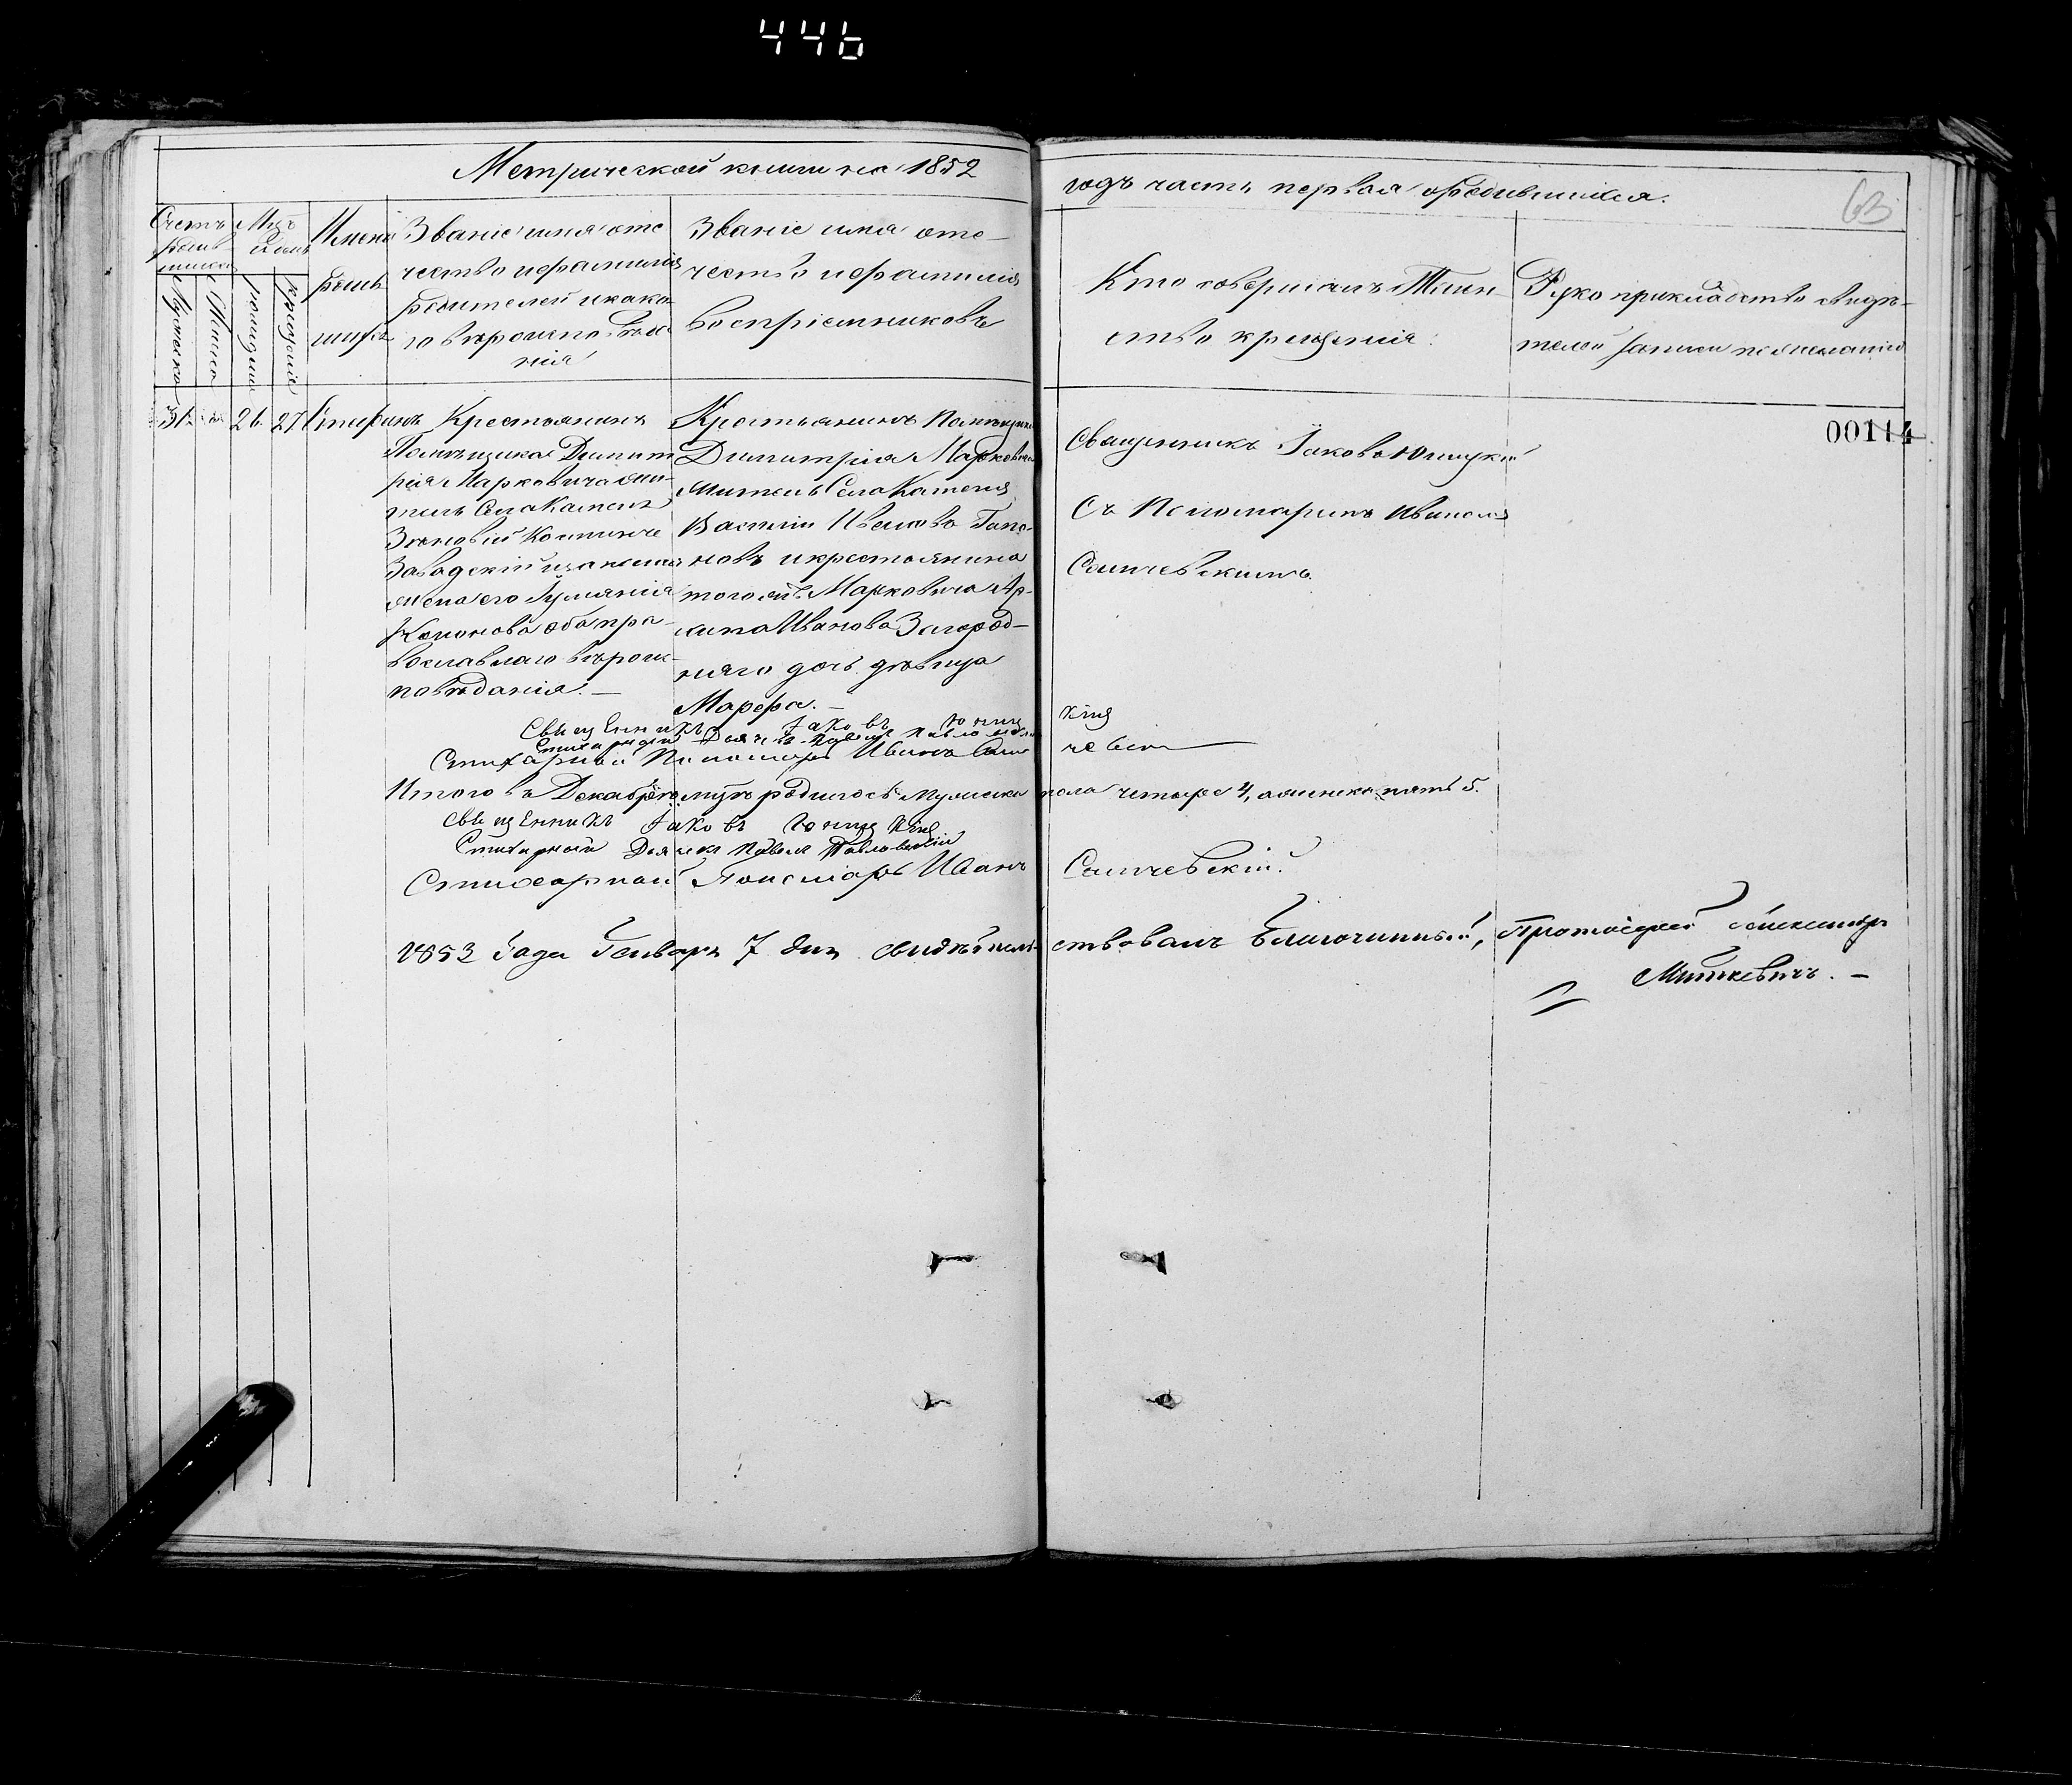 446
Метрической книги на 1852
годъ часть первая ородившихся.
63
Счетъ родившихся
Мужеска
Женска
Мць и день
рожденія
крещенія
Имена родившихъ
Званіе имя отечество ифамилія родителей икаковъроисповъданія
Званіе имя отечество ифамилія воспріемниковъ
Кто совершалъ Таинство крещенія
Рукоприкладство свидътелей записи пожеланію
00114
31. 26. 27 Стефанъ
Крестьянинъ
Помъщика Димитрія Марковича жтель Села Каменя
Зѣновій
Завадскій изаконная
жена его
Кононова оба православнаго въроисповъданія.
Крестьянинъ Помъщика
Димитрія Марковича
житель Села Каменя
Василій Ивановъ Гапоновъ икрестьянина
тогожъ Марковича
Иванова Загороднаго дочь дъвица
Марфа.
Священникъ Іаковъ Юницкій
Съ Пономаремъ Иваномъ
Священникъ Іаковъ Юницкій
Стихарный Дьячекъ Павелъ
Стихарный Пономарь Иванъ
Итого въ Декабрѣ мцѣ родилось Мужеска пола четыре 4, аженска пять 5.
Священникъ Іаковъ Юницкій
Стихарный Дьячекъ Павелъ Павловскій
Стихарный Пономарь Иванъ
1853 Года Генваря 7 дня свидѣтельствовалъ Благочинный, Протоіерей Александръ
Миткевичъ. –